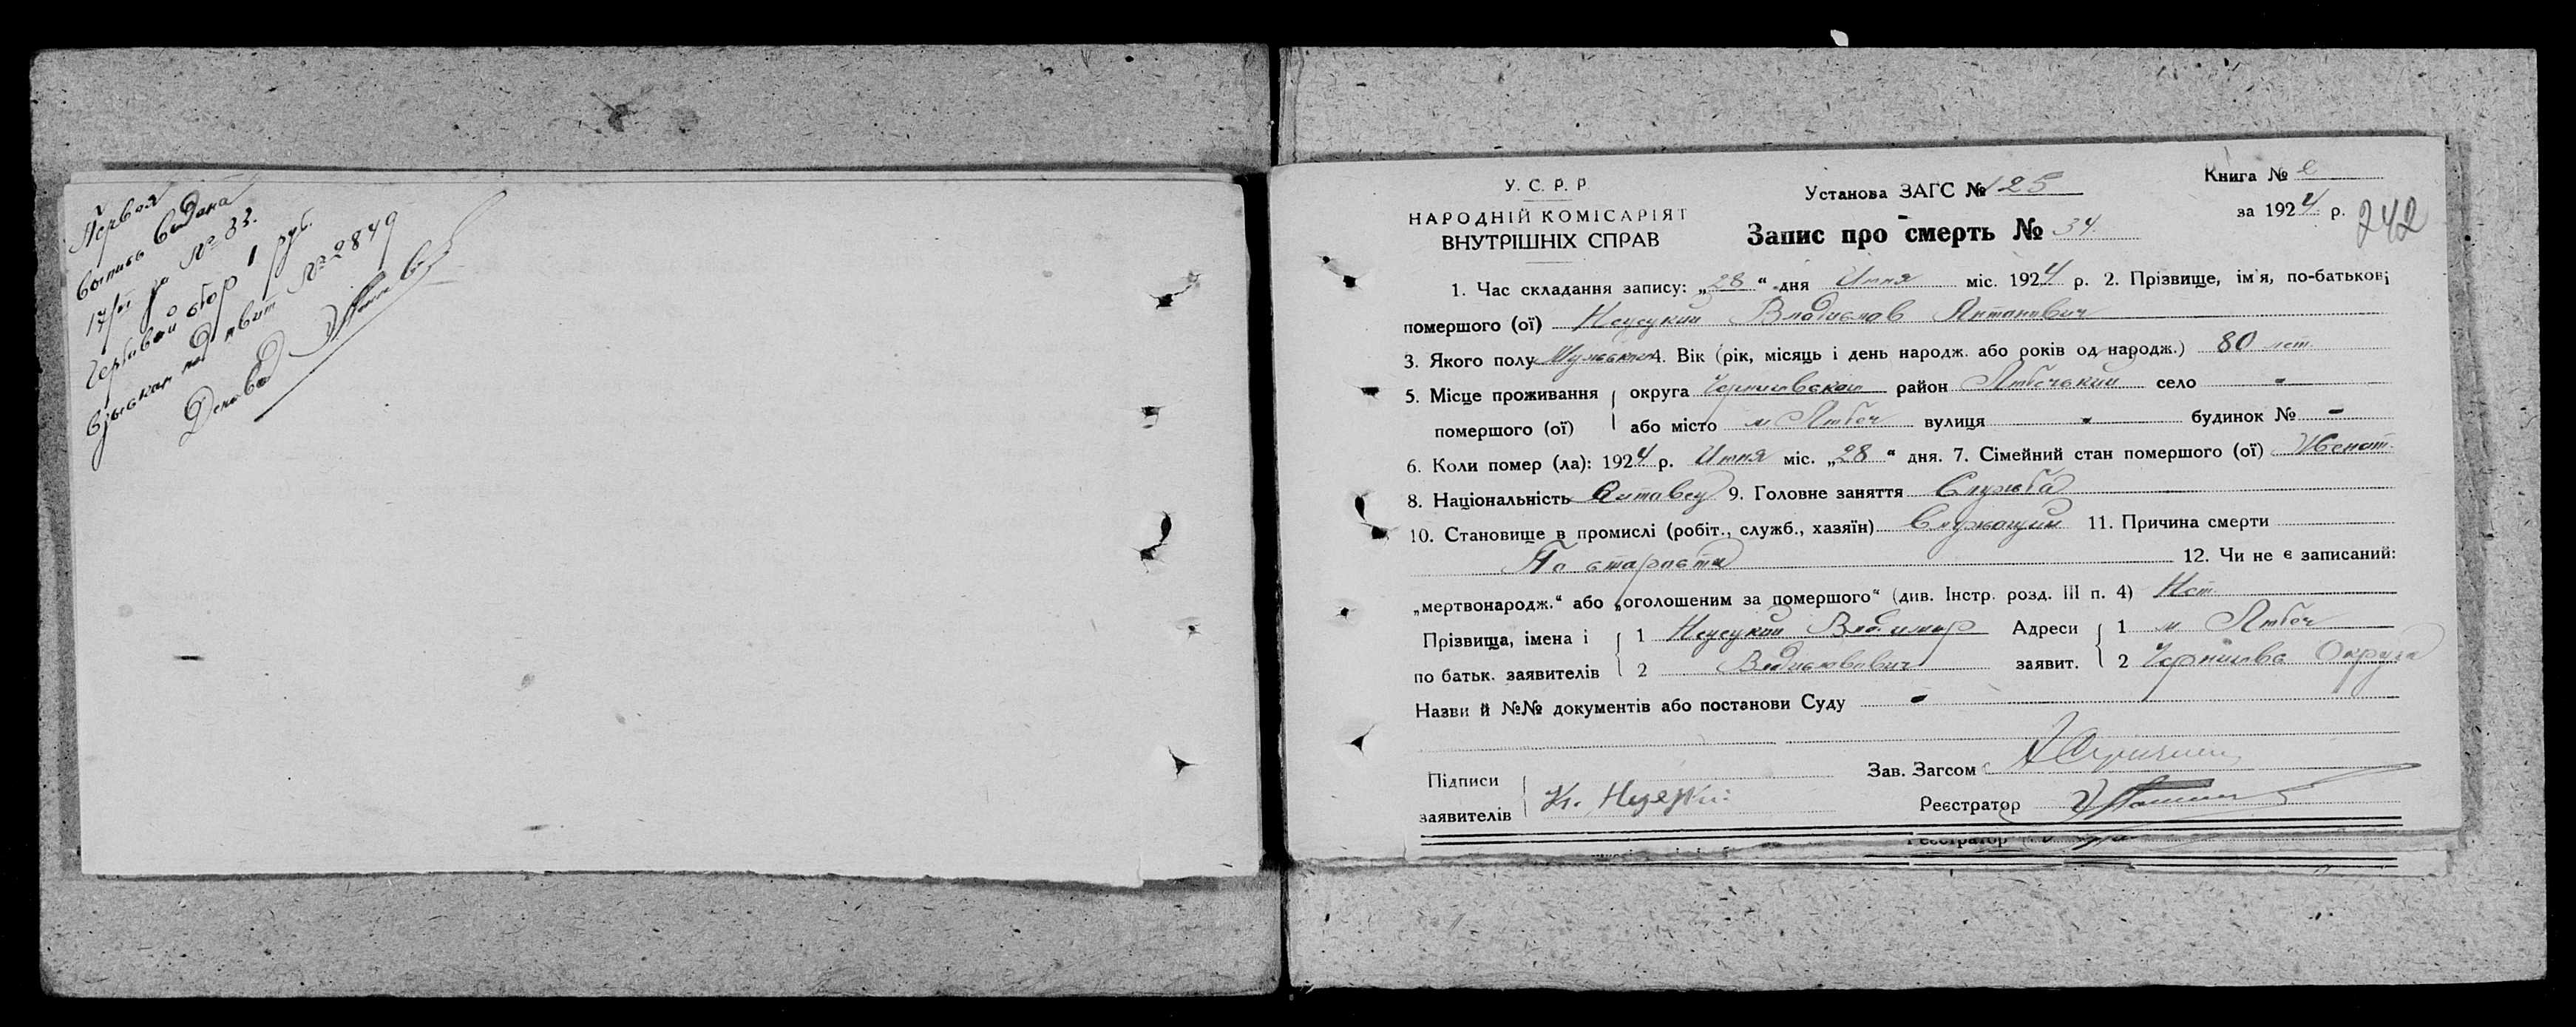 Первая
выпись выдана
17/VI за № 33.
Гербовый сбор 1 руб.
взыскан под квит № 2849
Деловод
У. С. Р. Р.
НАРОДНІЙ КОМІСАРІЯТ
ВНУТРІШНІХ СПРАВ
Установа ЗАГС № 125
Запис про смерть № 34.
Книга №
за 1924 р.
242
1. Час складання запису: „28“ дня Июня міс. 1924 р. 2. Прізвище, ім'я, по-батькові
помершого (ої) Владислав Антонович
3. Якого полу Мужского 4. Вік (рік, місяць і день народж. або років од народж.) 80 лет.
5. Місце проживання { округа Черниговской район Любечьский село -
помершого (ої) або місто м Любеч вулиця - будинок № -
6. Коли помер (ла): 1924 р. Июня міс. „28“ дня. 7. Сімейний стан помершого (ої) Женат.
8. Національність Литовец 9. Головне заняття Служба
10. Становище в промислі (робіт., служб., хазяїн) Служащий 11. Причина смерти
По старости 12. Чи не є записаний:
„мертвонародж.“ або „оголошеним за помершого“ (див. Інстр. розд. III п. 4) Нет
Прізвища, імена і { 1 Владимир Адреси { 1 м Любеч
по батьк. заявителів 2 Владиславович заявит. 2 Черниговс Округа
Назви й №№ документів або постанови Суду -
Підписи
заявителів
Зав. Загсом
Реєстратор
Реєстратор